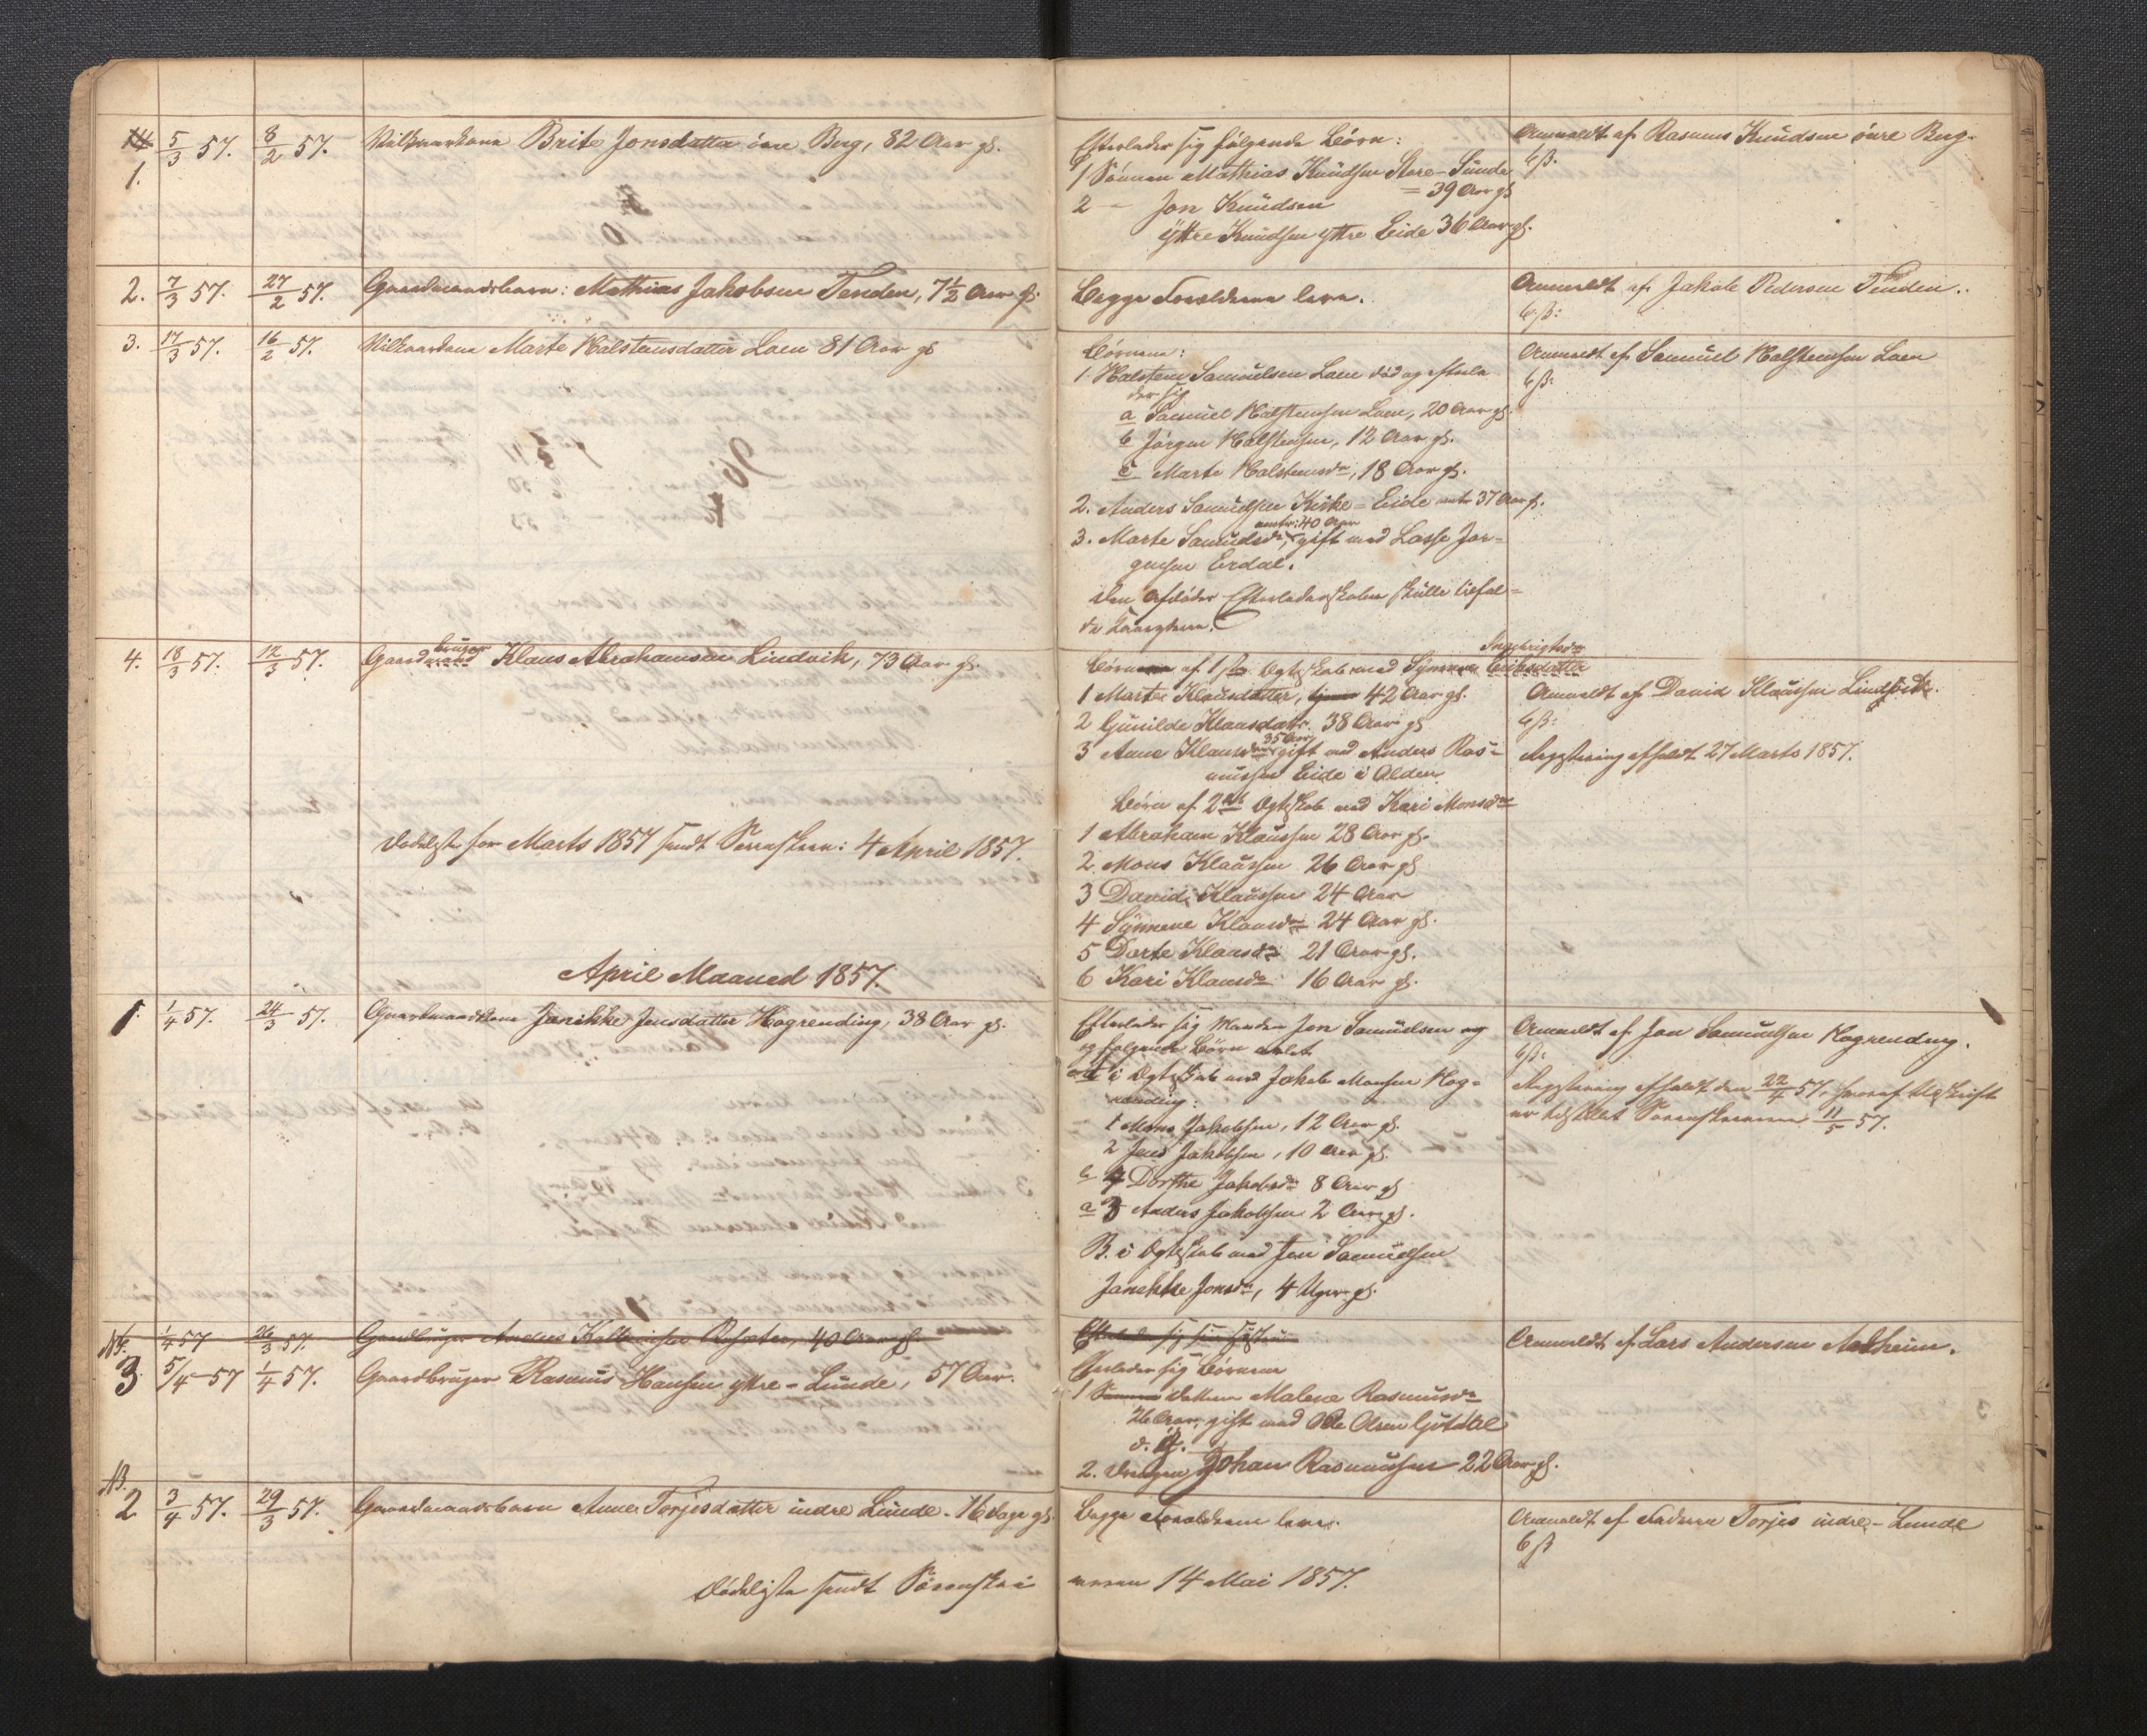 1.
5/3 57. 8/2 57. Vilkaarkone Brite Jonsdatter övre Berg, 82 Aar gl.
Efterlader sig følgende Börn:
1 Sönnen Mathias Knudsen Store-Sunde
= 39 Aar gl
2 — Jon Knudsen
yttre Eide 36 Aar gl.
Anmeldt af Rasmus Knudsen övre Berg.
2. 7/3 57. 27/2 57. Gaardmandsbarn: Mathias Jakobsen Tenden, 7½ Aar gl.
Begge Forældrene leve.
Anmeldt af Jakob Pedersen Tenden.
3. 17/3 57. 16/2 57. Vilkaarskone Marte Halstensdatter Loen 81 Aar gl
Börnene:
1. Halsten Samuelsen Loen död og efterla
der sig
a Samuel Halstensen Loen, 20 Aar gl.
b Jörgen Halstensen, 12 Aar gl.
c Marte Halstensdr, 18 Aar gl.
2. Anders Samuelsen Kirke-Eide 37 Aar gl.
3. Marte Samuelsdr, 40 Aar gift med Lasse Jør-
gensen Erdal.
Den Afdödes Efterladenskaber skulle tilfal-
de
Anmeldt af Samuel Halstensen Loen
4. 18/3 57. 12/3 57. Gaardbruger Klaus Abrahamsen Lindvik, 73 Aar gl.
Börn af 1ste Ægteskab med Synneve Ingebrigtsdr
1 Marte Klausdatter, 42 Aar gl.
2 Gunilde Klausdatr. 38 Aar gl
3 Anne Klausdatter 35 Aar gift med Anders Ras-
mussen Eide i Olden
Börn af 2det Ægteskab med Kari Monsdr
1 Abraham Klaussen 28 Aar gl.
2. Mons Klaussen 26 Aar gl
3 David Klaussen 24 Aar
4 Synneve Klausdr 24 Aar gl.
5 Dorte Klausdr 21 Aar gl.
6 Kari Klausdr 16 Aar gl.
Anmeldt af David Klaussen Lindvik.
Registrering afholdt 27 Marts 1857.
Dödsliste for Marts 1857 sendt Sorenskr: 4 April 1857.
April Maaned 1857.
1. 1/4 57. 24/3 57. Gaardmandskone Janikke Jensdatter Hogrending, 38 Aar gl.
Efterlader sig Manden Jon Samuelsen og
og følgende Börn avlet
i Ægteskab med Jakob Monsen Hog-
rending:
1 Mons Jakobsen, 12 Aar gl.
2 Jens Jakobsen, 10 Aar gl.
4 Dorthe Jakobsdr 8 Aar gl
3 Anders Jakobsen 2 Aar gl.
B. i Ægteskab med Jon Samuelsen
Janikke Jonsdr, 4 Uger gl.
Anmeldt af Jon Samuelsen Hogrending.
Registrering afholdt den 22/4 57, hvoraf Udskrift
er tilstillet Sorenskriveren 11/5 57.
1/4 57 26/3 57. Gaardbruger Anders 40 Aar gl
Anmeldt af Lars Andersen Aaheim.
3 5/4 57 1/4 57. Gaardbruger Rasmus Hansen yttre-Sunde, 57 Aar.
Efterlader sig Börnene
1 Datteren Malene Rasmusdr
26 Aar, gift med Ole Olsen Gutdal
2. Drengen Johan Rasmussen 22 Aar gl.
NB.
2 3/4 57. 29/3 57. Gaardmandsbarn Anne Torjesdatter indre Sunde. 16 Dage gl.
Begge Forældrene leve.
Anmeldt af Faderen Torjes indre-Sunde
Dödsliste sendt Sorenskri
veren 14 Mai 1857.